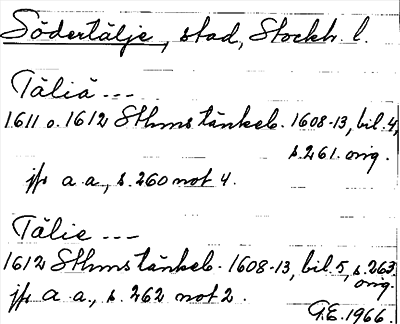 Södertälje, stad, Stockh. l.
Täliä ---
1611 o. 1612 Sthms tänkeb. 1608-13, bil. 4,
s. 261. orig.
jfr a. a., s. 260 not 4.
Tälie ---
1612 Sthms tänkeb. 1608-13, bil. 5, s. 263.
orig.
jfr a. a., s. 262 not 2.
G.E. 1966.